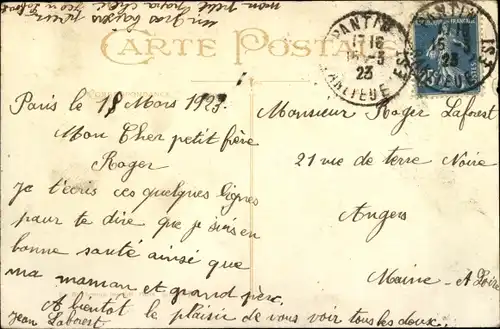 mon petit
un gros baiser pour
CARTE POSTALE
PANTIN
15 18
15-3
23
BANLIEUE EST
CORRESPONDANCE
Paris le 18 Mars 1923.
Mon Cher petit frère
Roger
Je t'écris ces quelques lignes
pour te dire que je suis en
bonne santé ainsi que
ma maman et grand père.
A bientot le plaisir de vous voir tous les deux.
Jean Laforest
Monsieur Roger Laforest
21 rue de terre Noire
Angers
Maine-A Loire